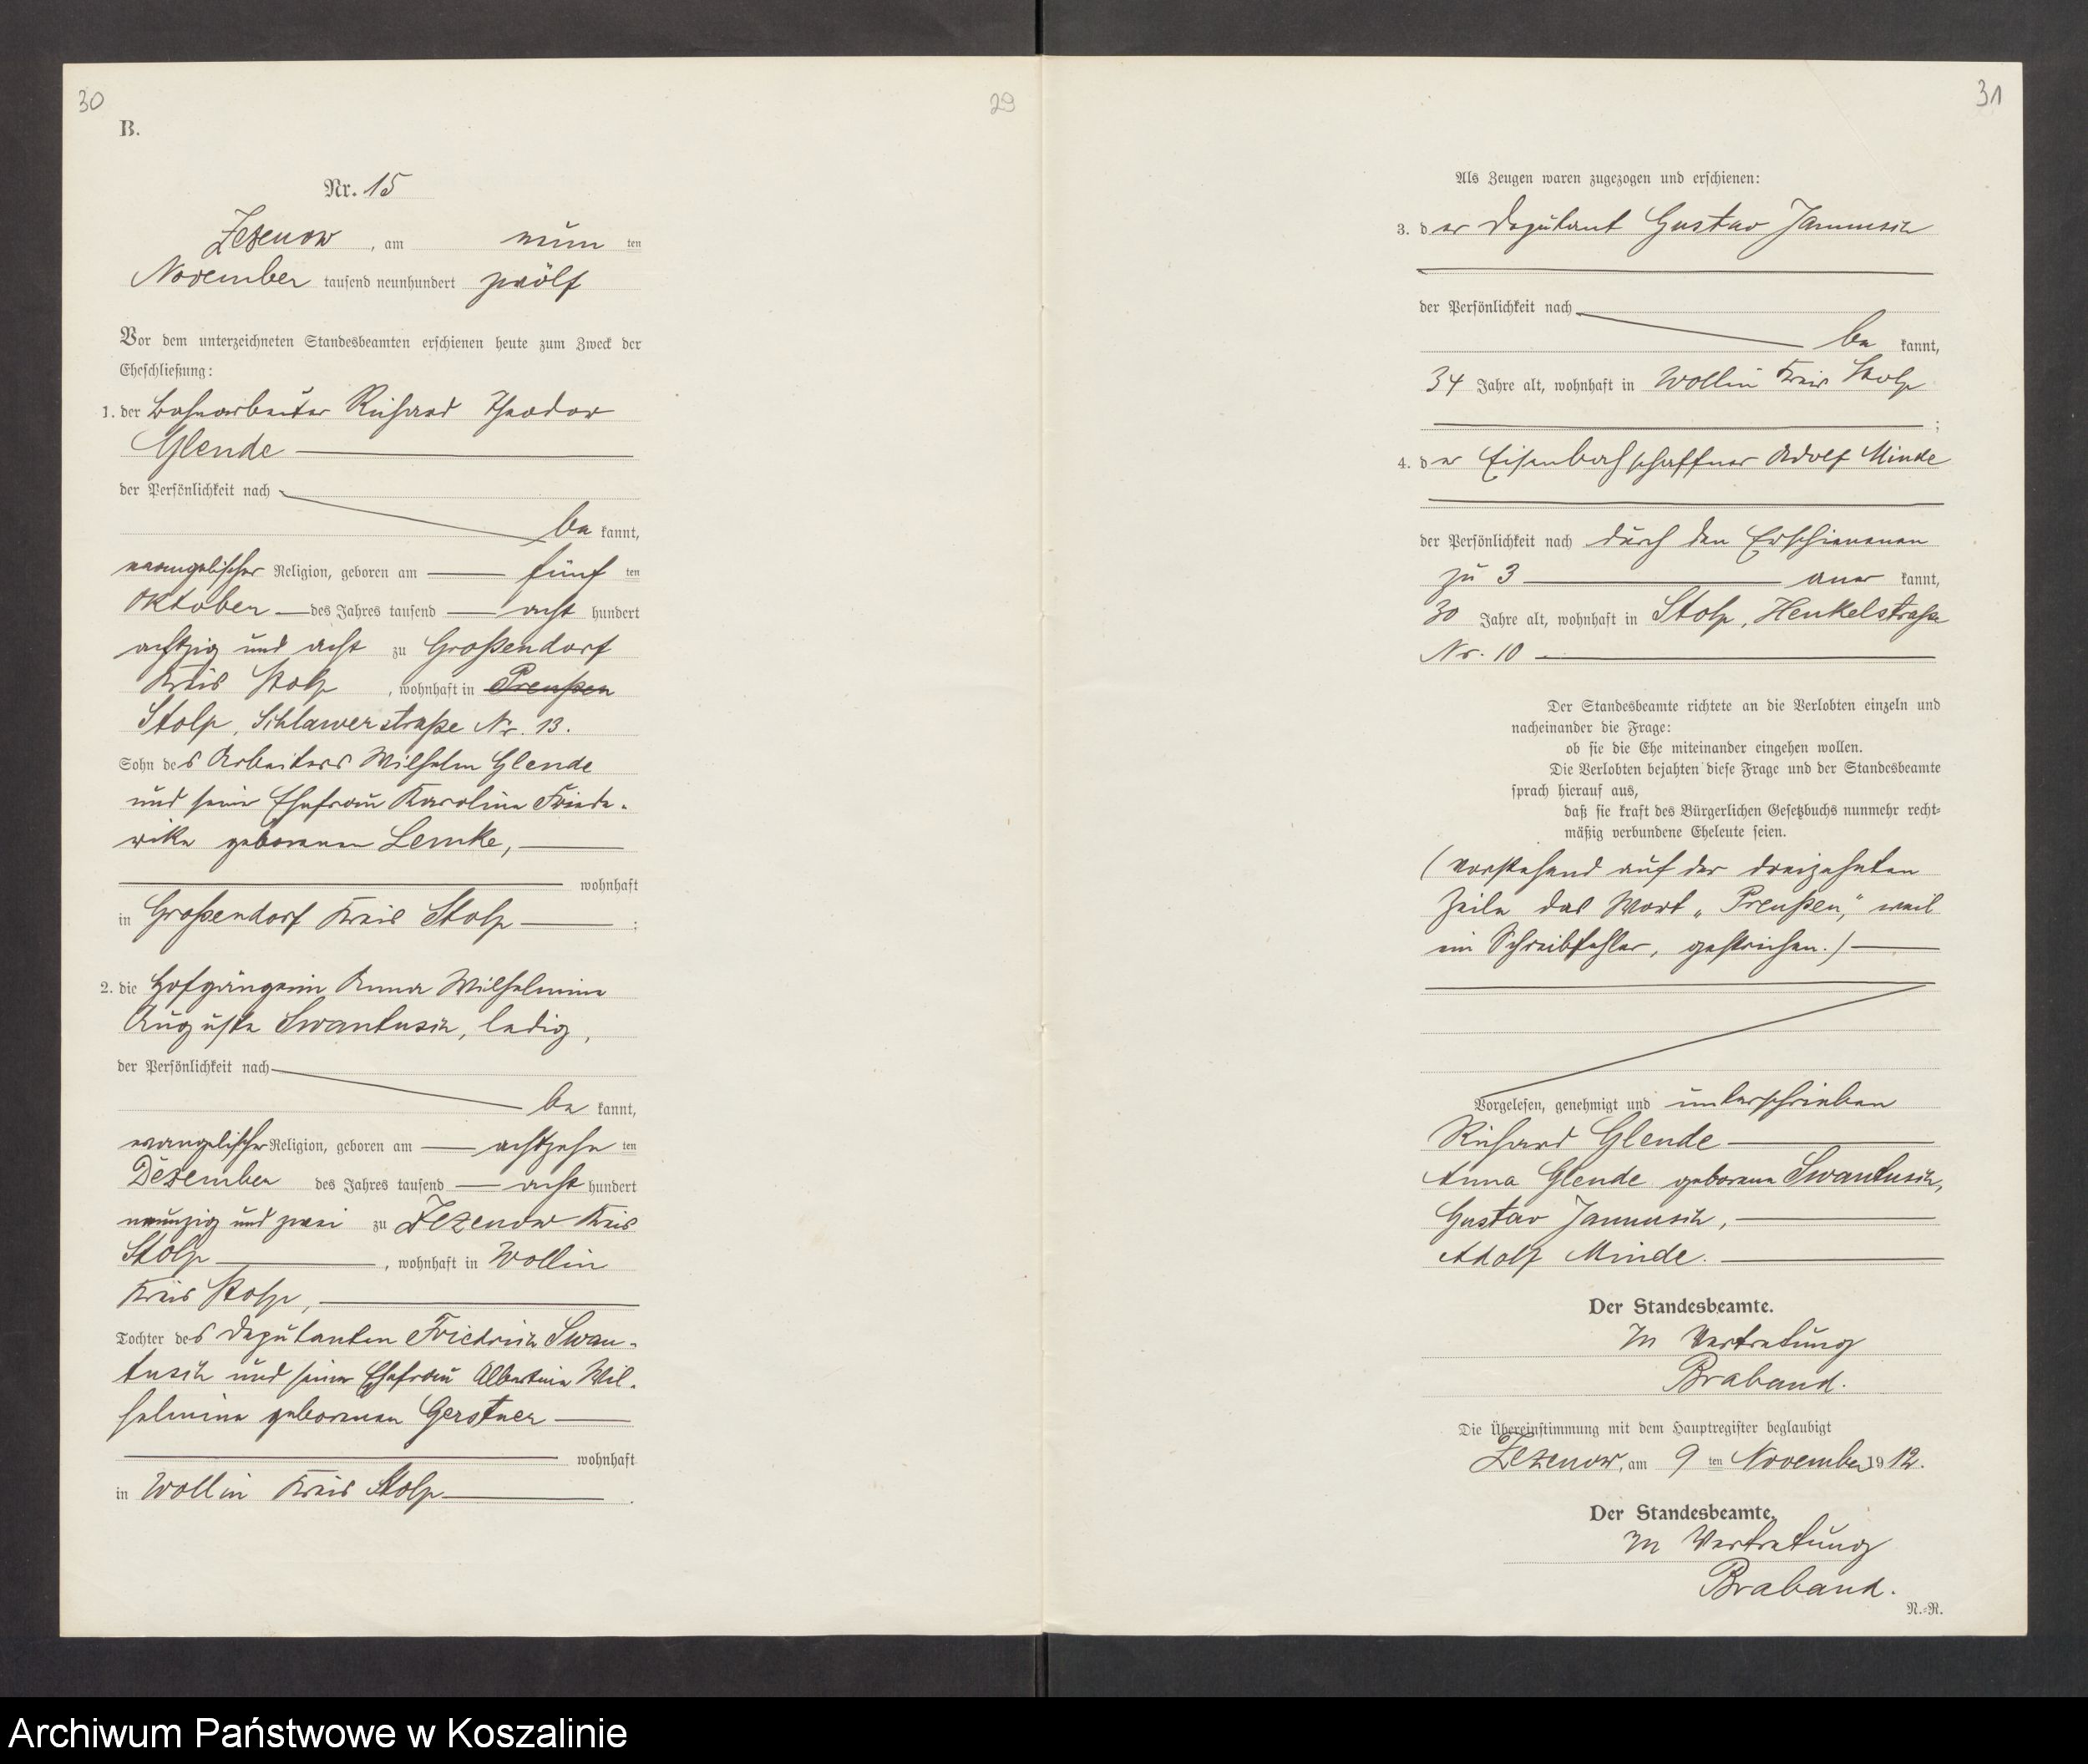 30
B.
Nr. 15
Zezenow, am neun ten
November tausend neunhundert zwölf
Vor dem unterzeichneten Standesbeamten erschienen heute zum Zweck der
Eheschließung:
1. der Bahnarbeiter Richard Theodor
Glende
der Persönlichkeit nach
be kannt,
evangelischer Religion, geboren am fünf ten
Oktober des Jahres tausend acht hundert
achtzig und acht zu Großendorf
Kreis Stolp, wohnhaft in Preußen
Stolp, Schlawerstraße Nr. 13.
Sohn des Arbeiters Wilhelm Glende
und seiner Ehefrau Karoline Friede-
rike geborenen Lemke,
wohnhaft
in Großendorf Kreis Stolp ;
2. die Hofgängerin Anna Wilhelmine
Auguste Swantusch, ledig,
der Persönlichkeit nach
be kannt,
evangelischer Religion, geboren am achtzehn ten
Dezember des Jahres tausend acht hundert
neunzig und zwei zu Zezenow Kreis
Stolp, wohnhaft in Wollin
Kreis Stolp,
Tochter des Deputanten Friedrich Swan-
tusch und seiner Ehefrau Albertine Wil-
helmine geborenen Gerstner
wohnhaft
in Wollin Kreis Stolp .
29
31
Als Zeugen waren zugezogen und erschienen:
3. der Deputant Gustav Jannusch
der Persönlichkeit nach
be kannt,
34 Jahre alt, wohnhaft in Wollin Kreis Stolp
;
4. der Eisenbahnschaffner Adolf Minde
der Persönlichkeit nach durch den Erschienenen
zu 3 aner kannt,
30 Jahre alt, wohnhaft in Stolp, Henkelstraße
Nr. 10
Der Standesbeamte richtete an die Verlobten einzeln und
nacheinander die Frage:
ob sie die Ehe miteinander eingehen wollen.
Die Verlobten bejahten diese Frage und der Standesbeamte
sprach hierauf aus,
daß sie kraft des Bürgerlichen Gesetzbuchs nunmehr recht-
mäßig verbundene Eheleute seien.
(Vorstehend auf der dreizehnten
Zeile das Wort „Preußen," weil
ein Schreibfehler, gestrichen.)
Vorgelesen, genehmigt und unterschrieben
Richard Glende
Anna Glende geborene Swantusch,
Gustav Jannusch,
Adolf Minde.
Der Standesbeamte.
In Vertretung
Braband.
Die Übereinstimmung mit dem Hauptregister beglaubigt
Zezenow, am 9 ten November 1912.
Der Standesbeamte.
In Vertretung
Braband.
N.-R.
Archiwum Państwowe w Koszalinie